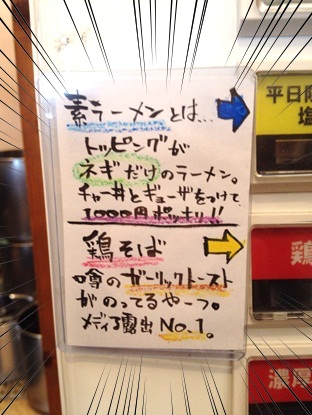 素ラーメンとは…
トッピングが
ネギだけのラーメン。
チャー丼とギョーザをつけて
1000円ポッキリ!!
鶏そば
噂のガーリックトースト
がのってるやーつ。
メディア露出No.1。
平日限
塩
鶏
濃厚